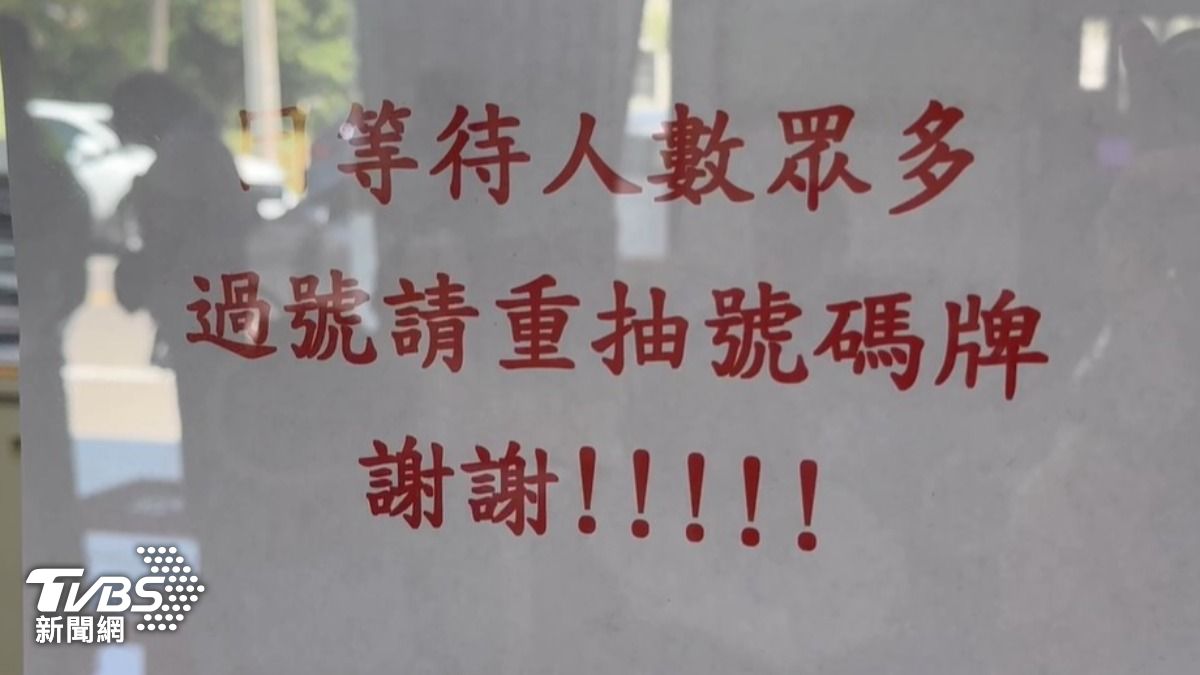 等待人數眾多
過號請重抽號碼牌
謝謝!!!!!
TVBS
新聞網